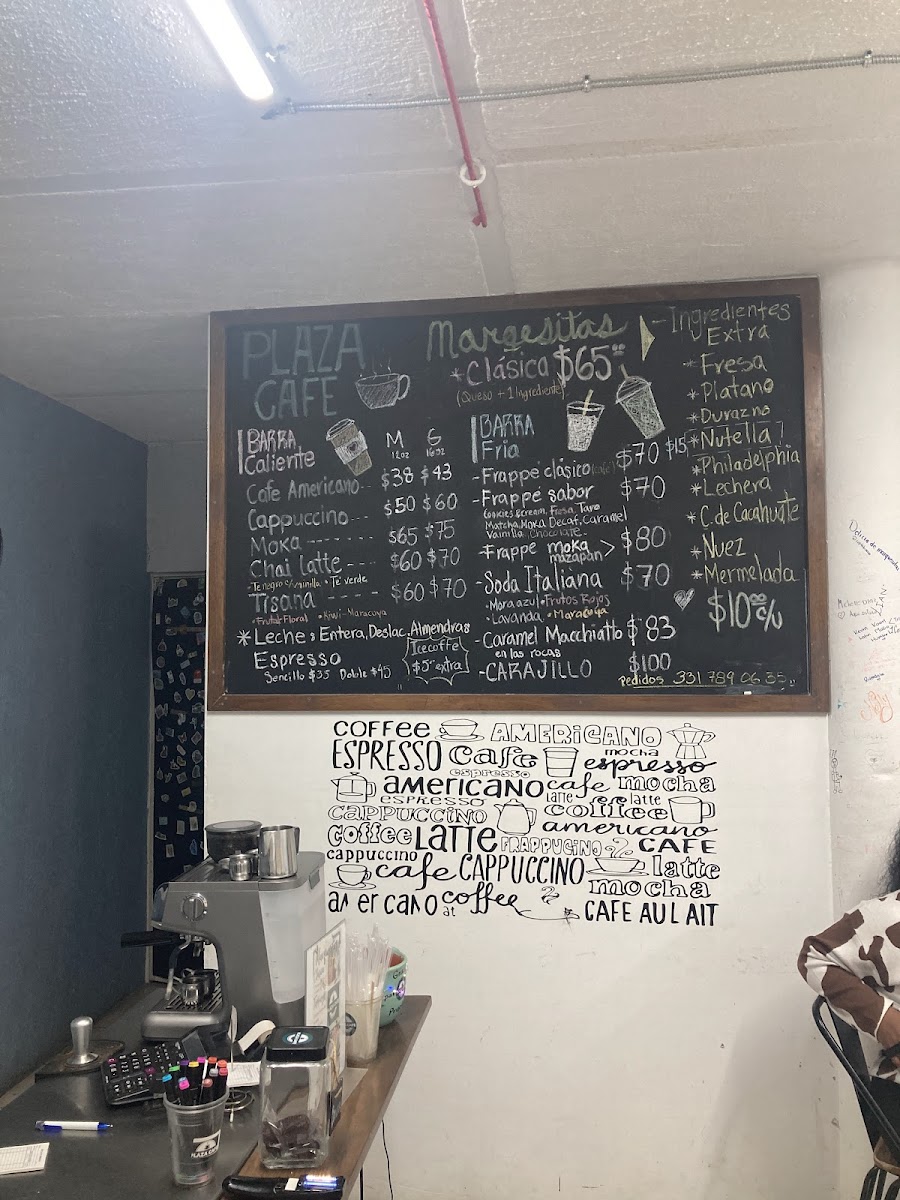 PLAZA
CAFE
Margesitas
*Clásica $65
(Queso + 1 Ingrediente)
BARRA
Caliente
M G
12oz 16oz
Cafe Americano-- $38 $43
Cappuccino--- $50 $60
Moka ------- $65 $75
Chai latte --- $60 $70
• Té verde
Tisana ---- $60 $70
•Frutal-Floral •Kiwi-Maracuya
*Leche: Entera, Deslac, Almendras
Espresso
Sencillo $35 Doble $45
Icecoffe
$5 extra
BARRA
Fria
-Frappe clásico (café) $70 $15
-Frappe sabor $70
Cookies&cream, Fresa, Taro
Matcha, Moka, Decaf, Caramel
Vainilla, Chocolate.
-Frappe moka
mazapan > $80
-Soda Italiana $70
•Mora azul •Frutos Rojos
•Lavanda •Maracuya
-Caramel Macchiatto $83
en las rocas
-CARAJILLO $100
pedidos 331 789 06 35
-Ingredientes
Extra
*Fresa
*Platano
*Durazno
*Nutella
*Philadelphia
*Lechera
*C. de Cacahuate
*Nuez
*Mermelada
$10⁰⁰ c/u
COFFEE AMERICANO
ESPRESSO Cafe mocha espresso
espresso
americano cafe mocha
espresso latte latte
CAPPUCCINO coffee
coffee LATTE americano
FRAPPUCINO CAFE
cappuccino cafe CAPPUCCINO latte
mocha
at coffee CAFE AU LAIT
PLAZA CAFE